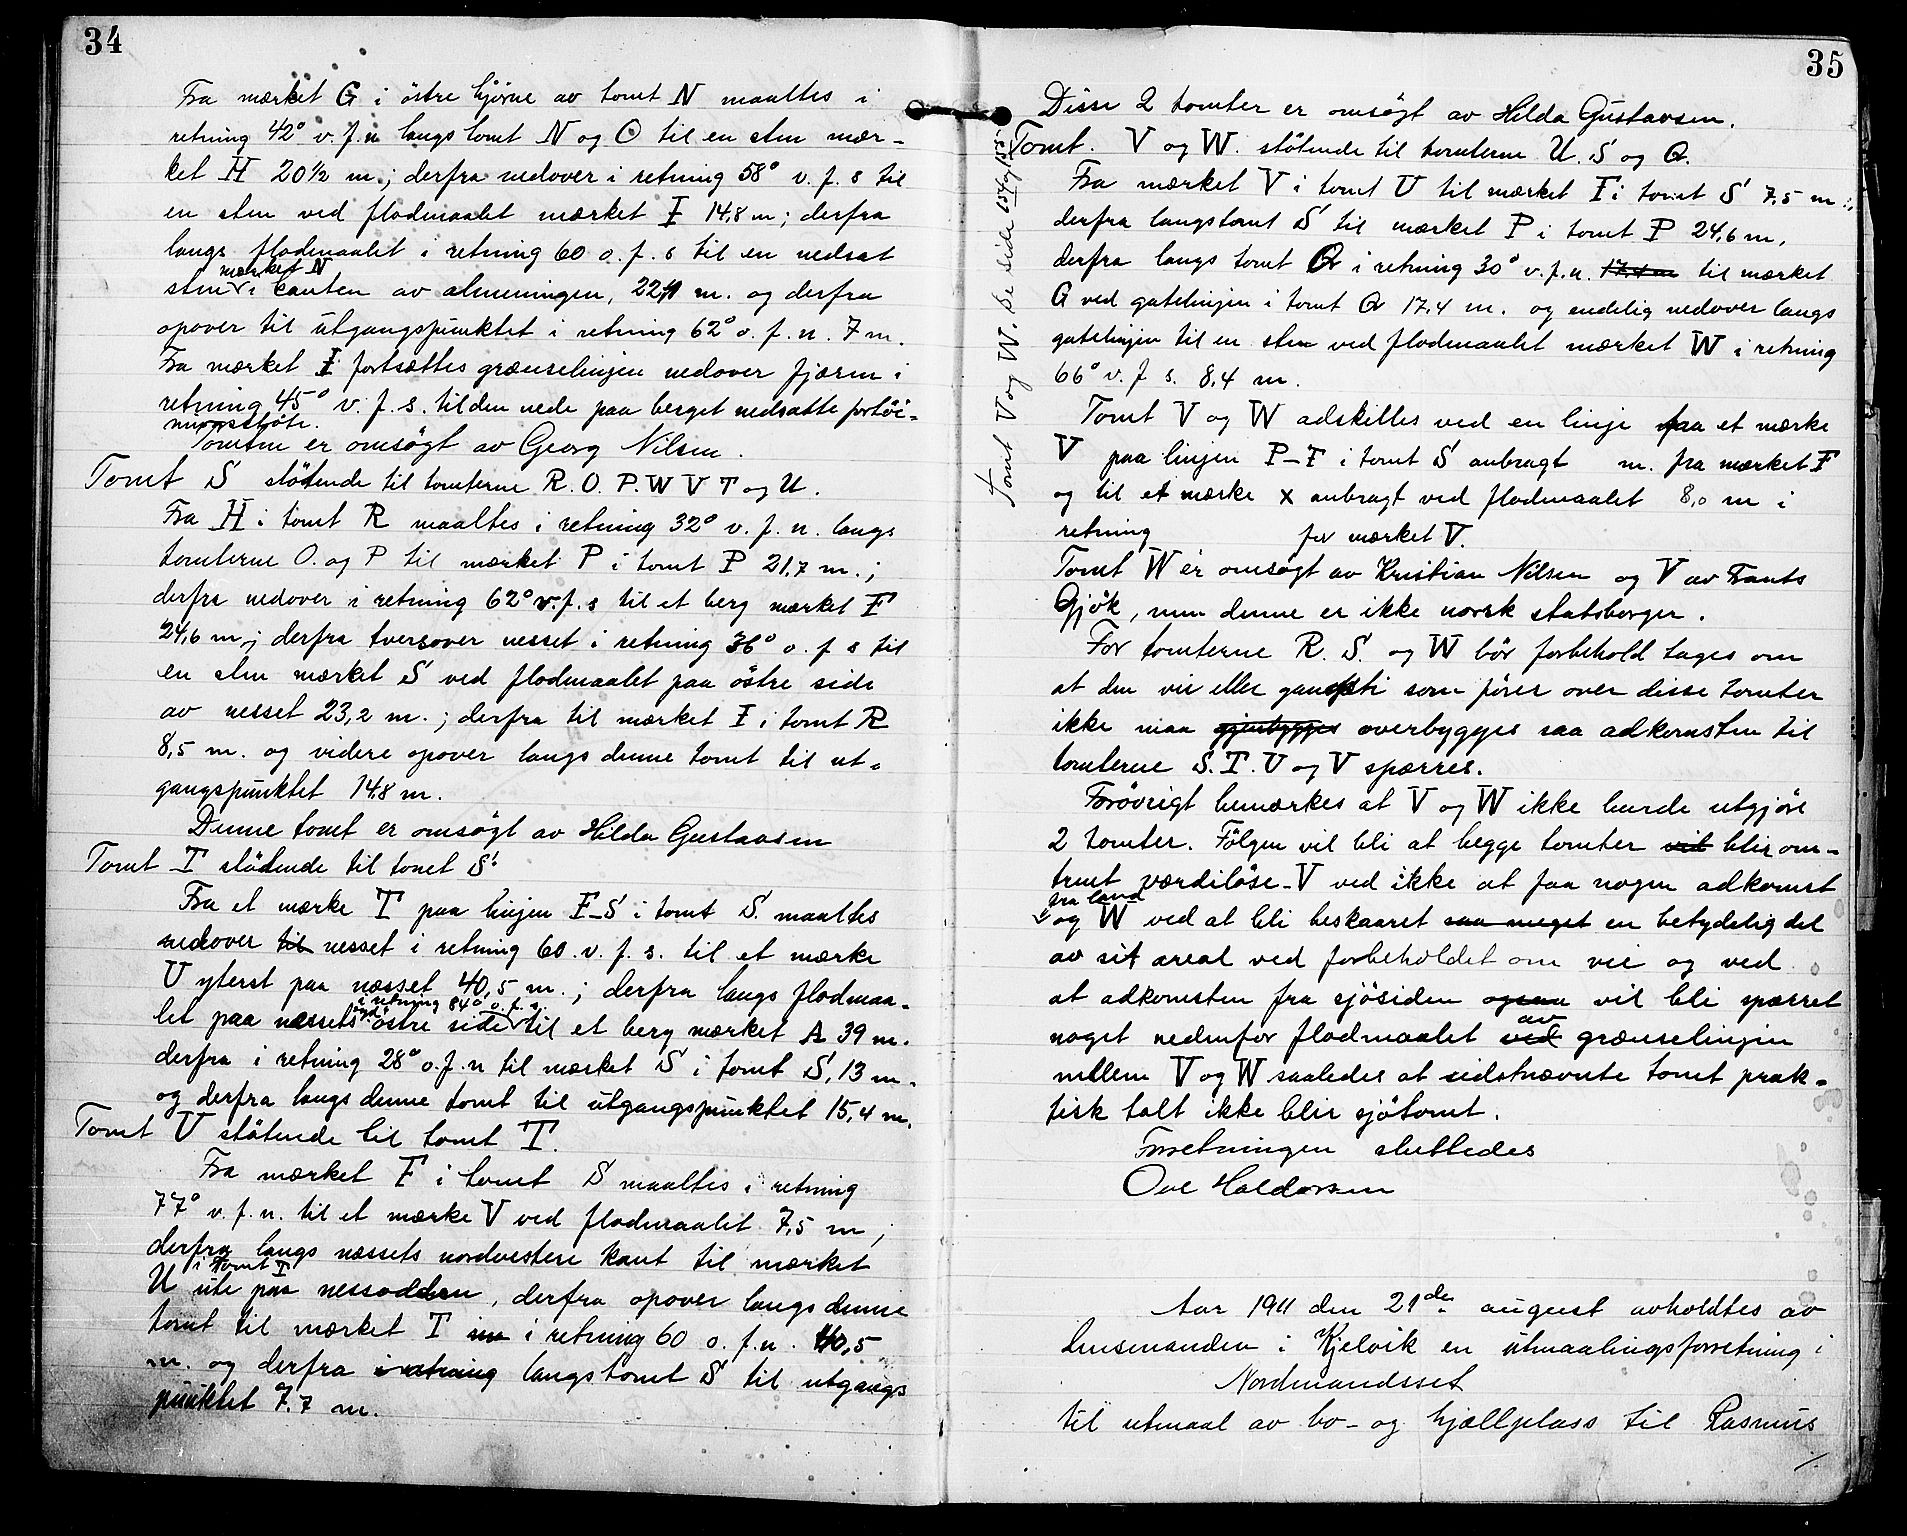 34
Fra mærket G i östre hjörne av tomt N maaltes i
retning 42° v.f.n langs tomt N og O til en sten mær-
ket H 20½ m.; derfra nedover i retning 58° v.f.s til
en sten ved flodmaalet mærket I 14,8 m; derfra
langs flodmaalet i retning 60 o.f.s til en nedsat
mærket N
sten i kanten av almeningen, 22,1 m. og derfra
opover til utgangspunktet i retning 62° o.f.n. 7 m.
Fra mærket I fortsættes grænselinjen nedover fjæren i
retning 45° v.f.s. til den nede paa berget nedsatte fortöi-
ningsstötte.
Tomten er omsögt av Georg Nilsen.
Tomt S stötende til tomterne R.O.P.W V T og U.
Fra H i tomt R maaltes i retning 32° v.f.n. langs
tomterne O. og P til mærket P i tomt P 21,7 m.;
derfra nedover i retning 62° v.f.s til et berg mærket F
24,6 m; derfra tversover nesset i retning 36° o.f s til
en sten mærket S ved flodmaalet paa östre side
av nesset 23,2 m.; derfra til mærket I i tomt R
8,5 m. og videre opover langs denne tomt til ut-
gangspunktet 14,8 m.
Denne tomt er omsögt av Hilda Gustavsen
Tomt T stötende til tomt S.
Fra et mærke T paa linjen F-S i tomt S. maaltes
nedover til nesset i retning 60. v.f.s. til et mærke
U yterst paa næsset 40,5 m.; derfra langs flodmaa-
i retning 84° o.f.s.
let paa næssets östre side til et berg mærket A 39 m.
derfra i retning 28° o.f.n til mærket S i tomt S, 13 m.
og derfra langs denne tomt til utgangspunktet 15,4 m.
Tomt U stötende til tomt T.
Fra mærket F i tomt S maaltes i retning
77° v.f.n. til et mærke V ved flodmaalet 7,5 m;
derfra langs næssets nordvestere kant til mærket
i tomt T
U ute paa nessodden, derfra opover langs denne
tomt til mærket T i retning 60 o.f.n. 40,5
m. og derfra i retning langs tomt S til utgangs
punktet 7.7 m.
35
Disse 2 tomter er omsögt av Hilda Gustavsen.
Tomt. V og W. stötende til tomterne U. S og Q.
Fra mærket V i tomt U til mærket F i tomt S 7,5 m;
derfra langs tomt S til mærket P i tomt P 24,6 m,
derfra langs tomt Q i retning 30° v.f.n. 17,4 m til mærket
G ved gatelinjen i tomt Q 17,4 m. og endelig nedover langs
gatelinjen til en sten ved flodmaalet mærket W i retning
66° v.f s. 8,4 m.
Tomt V og W adskilles ved en linje fra et mærke
V paa linjen P-F i tomt S anbragt m. fra mærket F
og til et mærke x anbragt ved flodmaalet 8,0 m i
retning for mærket V.
Tomt W er omsögt av Kristian Nilsen og V av Frants
Gjök, men denne er ikke norsk statsborger.
For tomterne R. S. og W bör forbehold tages om
at den vei eller gangsti som förer over disse tomter
ikke maa gjenbygges overbygges saa adkomsten til
tomterne S. T. U og V spærres.
Forövrigt bemærkes at V og W ikke burde utgjöre
2 tomter. Fölgen vil bli at begge tomter vil blir om-
trent værdilöse - V ved ikke at faa nogen adkomst
fra land
og W ved at bli beskaaret saa meget en betydelig del
av sit areal ved forbeholdet om vei og ved
at adkomsten fra sjösiden ogsaa vil bli spærret
av
noget nedenfor flodmaalet ved grænselinjen
mellem V og W saaledes at sidstnævnte tomt prak-
tisk talt ikke blir sjötomt.
Forretningen sluttedes
Ove Haldorsen
Aar 1911 den 21de august avholdtes av
Lensmanden i Kjelvik en utmaalingsforretning i
Nordmandsset
til utmaal av bo- og hjællplass til Rasmus
Tomt V og W. Se side 154 og 155